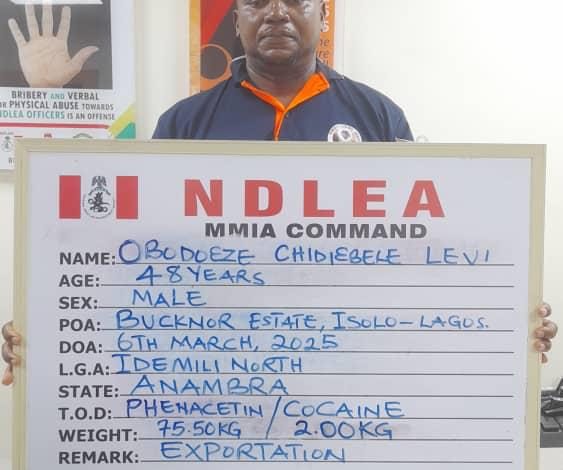 BRIBERY AND VERBAL
OR PHYSICAL ABUSE TOWARDS
NDLEA OFFICERS IS AN OFFENSE
NDLEA
MMIA COMMAND
NAME: OBODOEZE CHIDIEBELE LEVI
AGE: 48 YEARS
SEX: MALE
POA: BUCKNOR ESTATE, ISOLO-LAGOS.
DOA: 6TH MARCH, 2025
L.G.A: IDEMILI NORTH
STATE: ANAMBRA
T.O.D: PHENACETIN/COCAINE
WEIGHT: 75.50KG / 2.00KG
REMARK: EXPORTATION